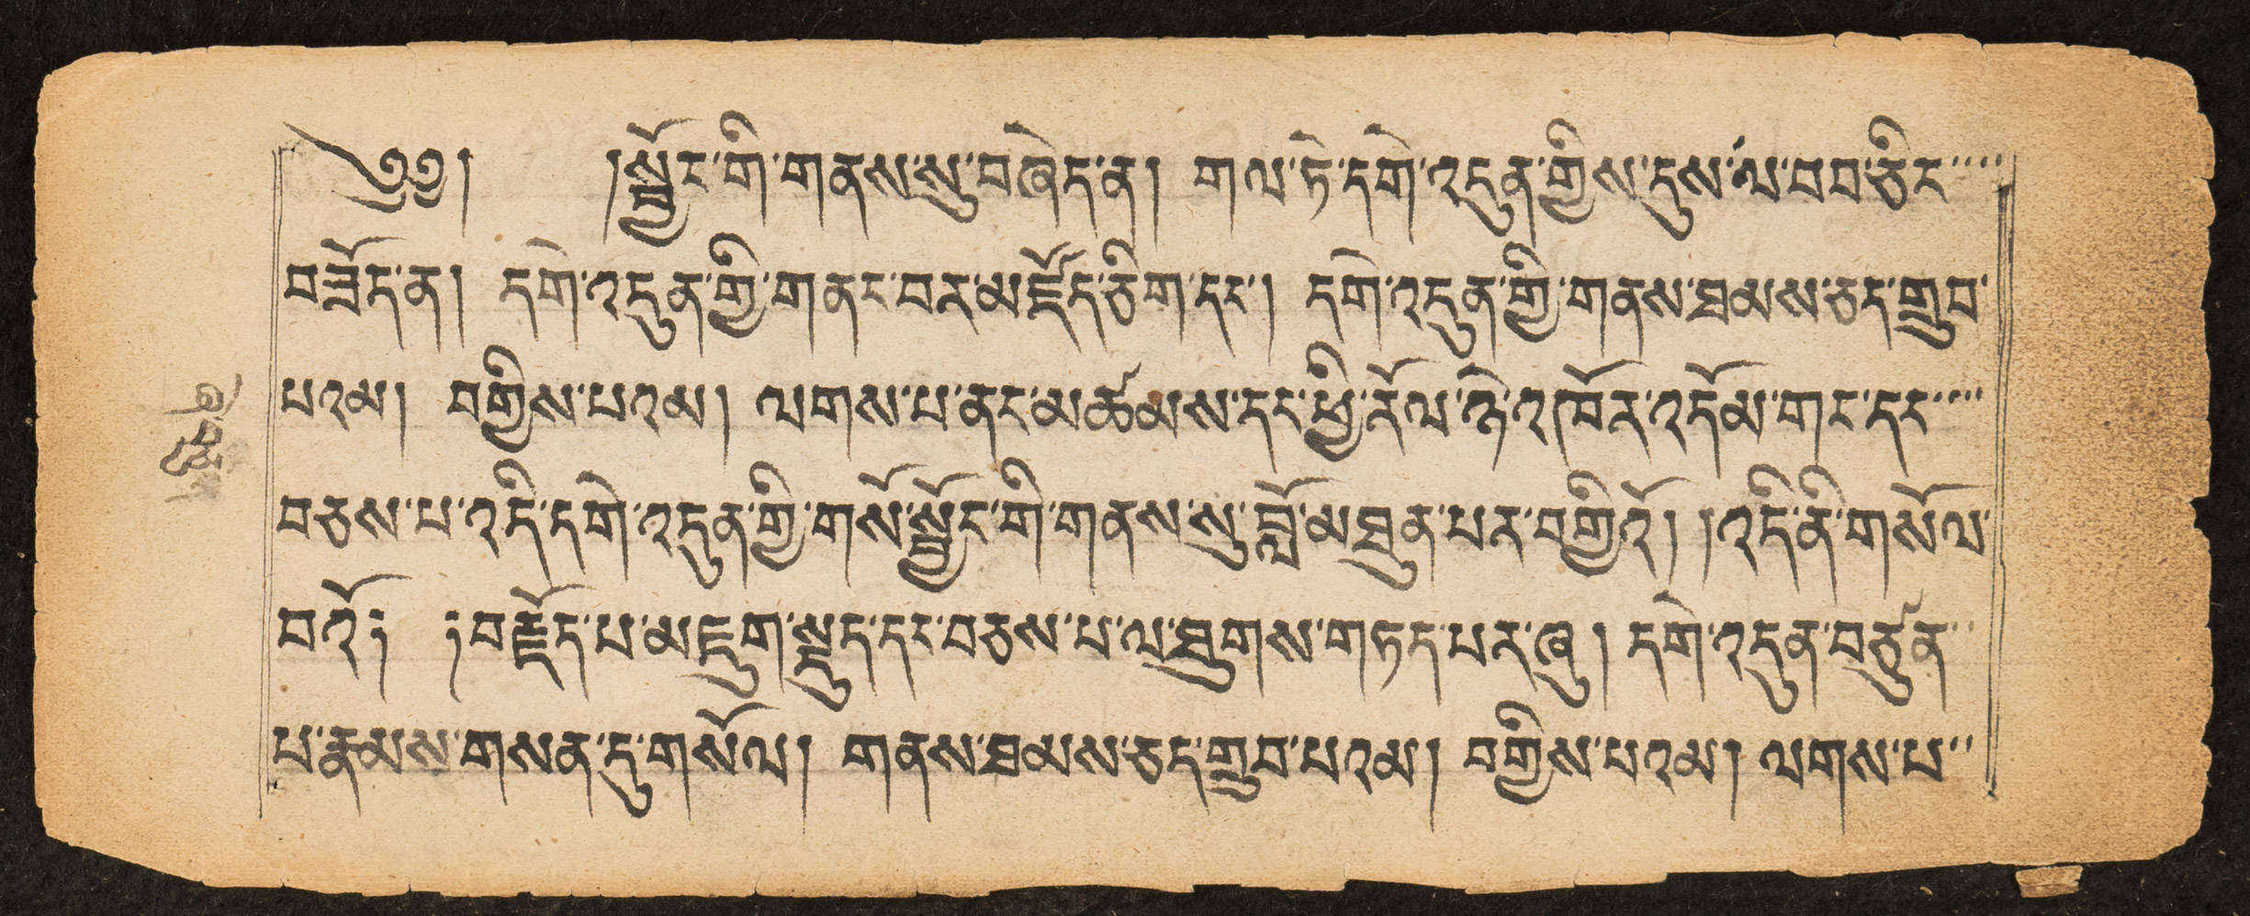 ༄༅། །སྦྱོང་གི་གནས་སུ་བཞེད་ན། གལ་ཏེ་དགེ་འདུན་གྱིས་དུས་ལ་བབ་ཅིང
བཟོད་ན། དགེ་འདུན་གྱི་གནང་བར་མཛོད་ཅིག་དང་། དགེ་འདུན་གྱི་གནས་ཐམས་ཅད་གྲུབ་
པའམ། བགྱིས་པའམ། ལགས་པ་ནང་མཚམས་དང་ཕྱི་རོལ་ཉེ་འཁོར་འདོམ་གང་དང
བཅས་པ་འདི་དགེ་འདུན་གྱི་གསོ་སྦྱོང་གི་གནས་སུ་བློ་མཐུན་པར་བགྱིའོ། །འདི་ནི་གསོལ་
བའོ༔ ༔བརྗོད་པ་མཇུག་སྡུད་དང་བཅས་པ་ལ་ཐུགས་གཏད་པར་ཞུ། དགེ་འདུན་བཙུན
པ་རྣམས་གསན་དུ་གསོལ། གནས་ཐམས་ཅད་གྲུབ་པའམ། བགྱིས་པའམ། ལགས་པ